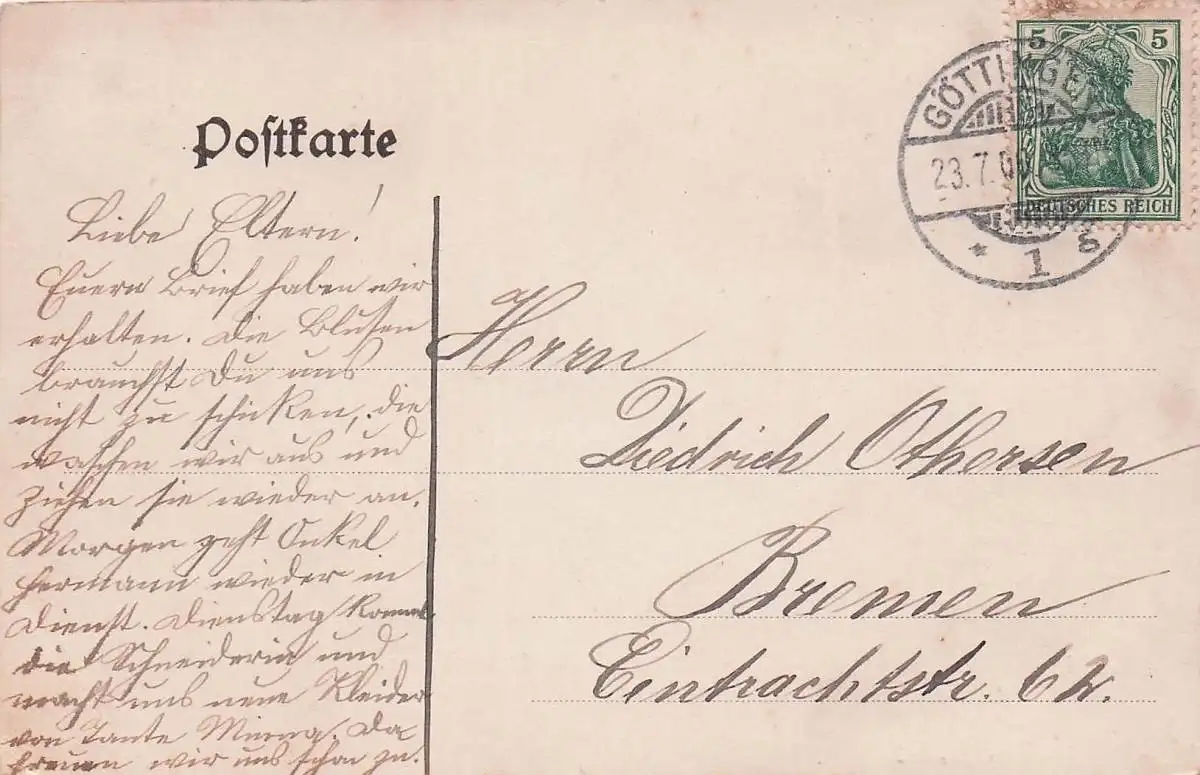 Postkarte
5 5
DEUTSCHES REICH
GÖTTINGE
23.7.0
* 1 g
Liebe Eltern!
Euern Brief haben wir
erhalten. Die Blusen
brauchst Du uns
nicht zu schicken, die
waschen wir aus und
ziehen sie wieder an.
Morgen geht Onkel
Hermann wieder in
Dienst. Dienstag kommt
die Schneiderin und
macht uns neue Kleider
von Tante Minna. Da
freuen wir uns schon zu.
Herrn
Diedrich Othersen
Bremen
Eintrachtstr. 62.